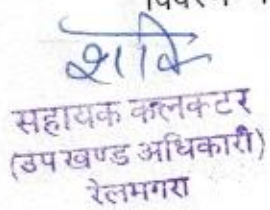 सहायक कलक्टर
(उपखण्ड अधिकारी)
रेलमगरा